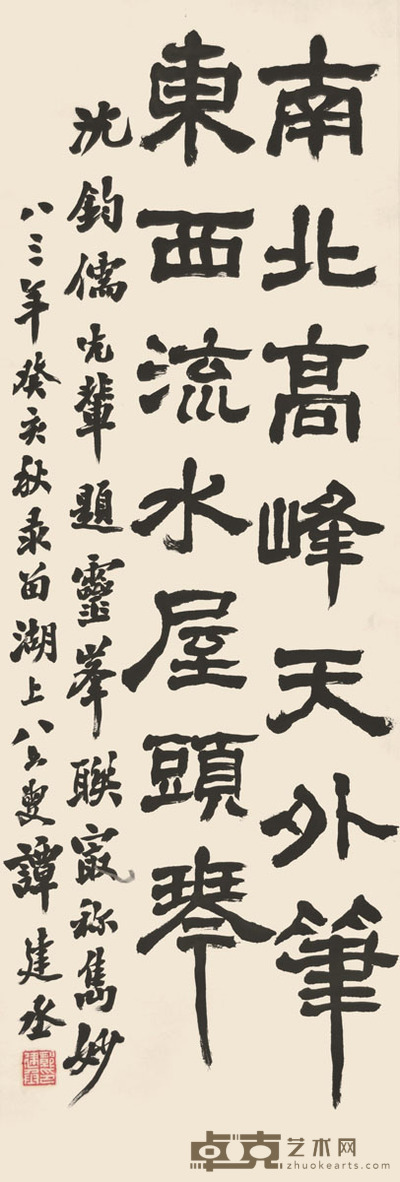 南北高峰天外筆
東西流水屋頭琴
沈鈞儒先輩題靈峯聯最称雋妙
八三年癸亥秋录留湖上八六叟譚建丞
卓克艺术网
zhuokearts.com